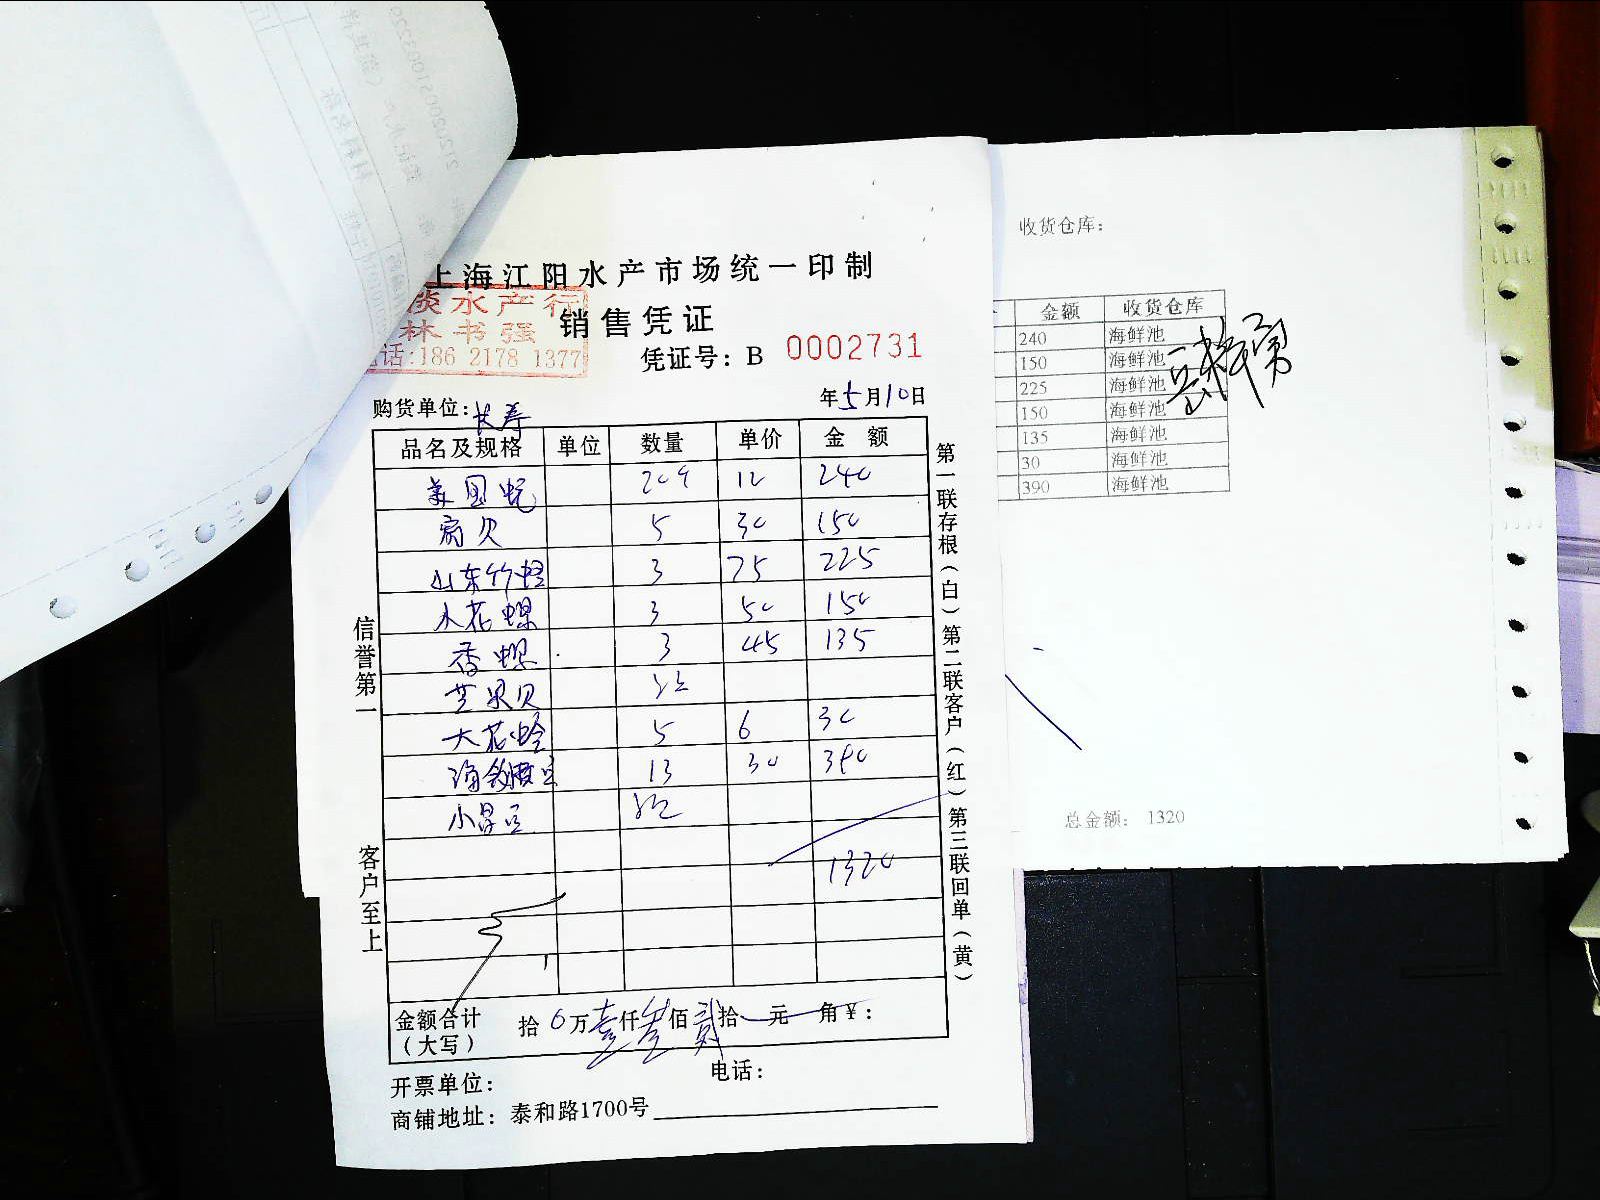 上海江阳水产市场统一印制
淡水产行
林书强
话:186 2178 1377
销售凭证
凭证号：B 0002731
购货单位：长寿 年5月10日
品名及规格 单位 数量 单价 金额
美国蚝 20个 12 240
扇贝 5 30 150
山东竹蛏 3 75 225
水花螺 3 50 150
香螺 3 45 135
芒果贝
大花蛤 5 6 30
13 30 390
小
1320
金额合计（大写） 拾0万壹仟叁佰贰拾元角¥：
开票单位： 电话：
商铺地址：泰和路1700号
信誉第一
客户至上
第一联存根（白）第二联客户（红）第三联回单（黄）
收货仓库：
金额 收货仓库
240 海鲜池
150 海鲜池
225 海鲜池
150 海鲜池
135 海鲜池
30 海鲜池
390 海鲜池
总金额： 1320